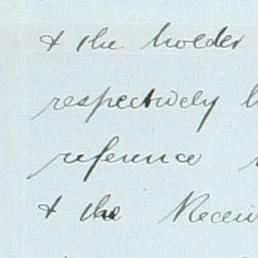 & the holder
respectively
reference
& the Receiv